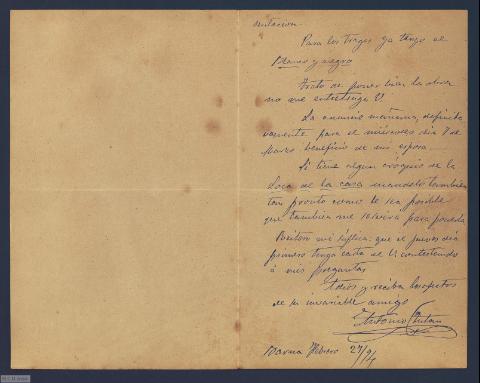 mutacion.
Para los trages ya tengo el
Blanco y negro
Trato de poner bien la obra
no me entretenga V.
La anuncie mañana, definiti
vamente para el miercoles dia 7 de
Marzo beneficio de mi esposa.
Si tiene algun cróquis de la
Loca de la casa mandelo tambien
tan pronto como le sea posible
que tambien me servira para ponerla
mi súplica: que el jueves dia
primero tenga carta de V. contestando
á mis preguntas
Adios y reciba los afectos
de su invariable amigo
Antonio
Barna Febrero 27/94